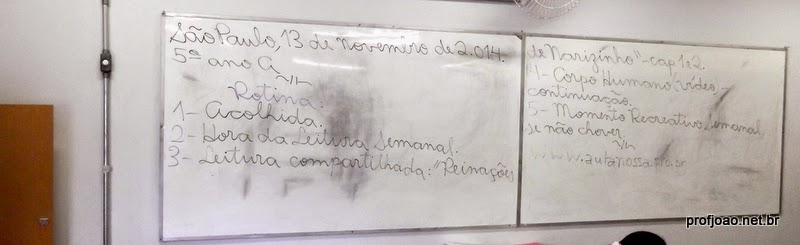 São Paulo, 13 de novembro de 2.014.
5º ano A
Rotina:
1- Acolhida.
2- Hora da Leitura Semanal.
3- Leitura compartilhada: "Reinações
de Narizinho" - cap 1 e 2.
4- Corpo Humano (vídeo) -
continuação.
5- Momento Recreativo Semanal,
se não chover.
profjoao.net.br